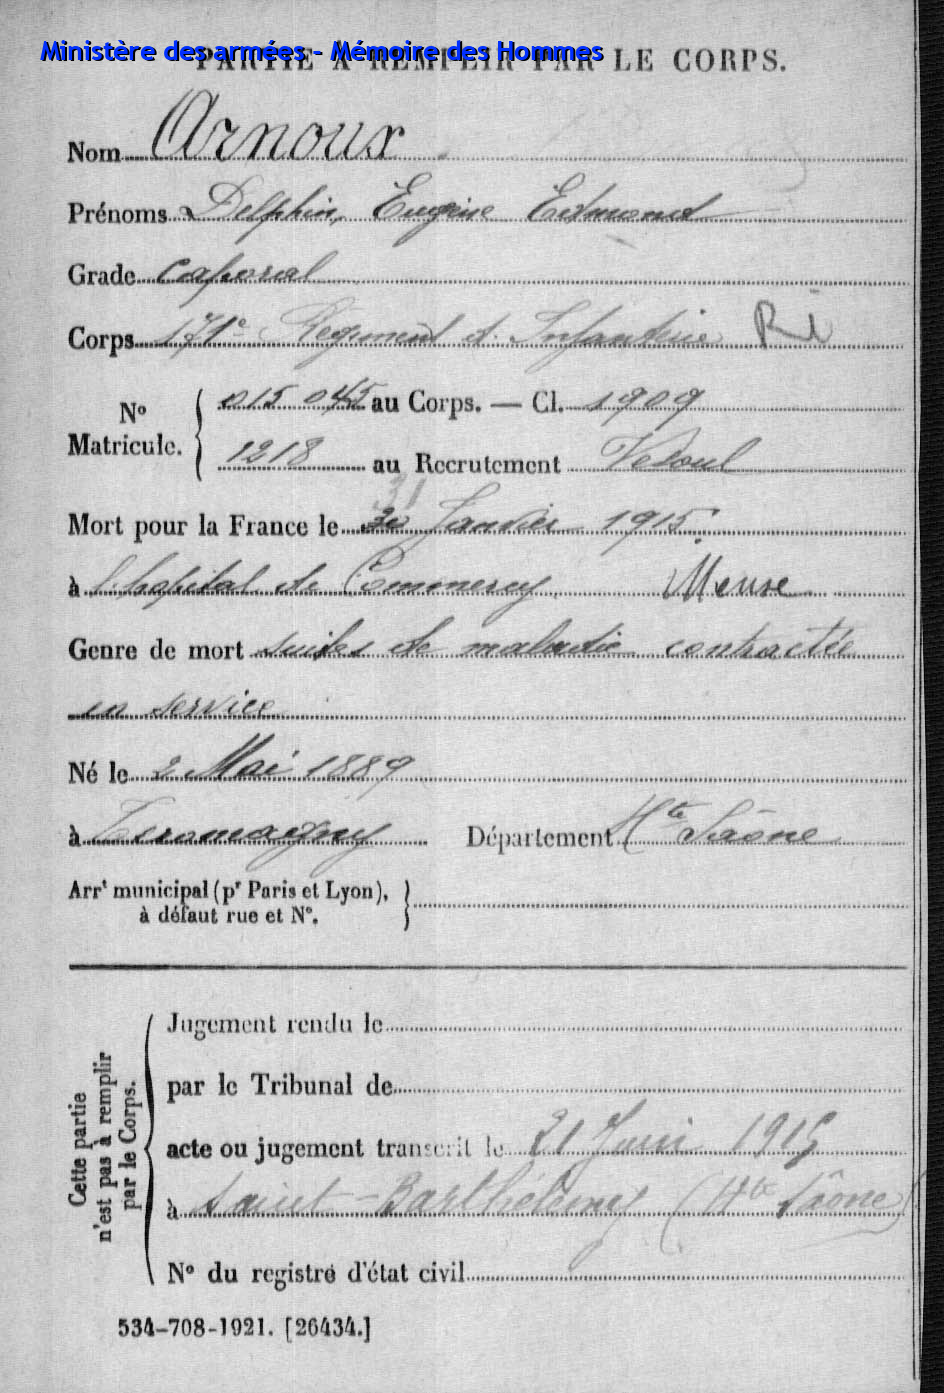 Ministère des armées - Mémoire des Hommes
PARTIE À REMPLIR PAR LE CORPS.
Nom Arnoux
Prénoms Delphin, Eugène Edmond
Grade Caporal
Corps 171e Régiment d'Infanterie RI
No Matricule. 015 045 au Corps. — Cl. 1909
1218 au Recrutement Vesoul
31
Mort pour la France le 30 Janvier 1915.
à l'hopital de Commercy Meuse
Genre de mort suites de maladie contractée
en service
Né le 2 Mai 1889
à Ternuay Département Hte Saône
Arrt municipal (pr Paris et Lyon),
à défaut rue et No.
Cette partie n'est pas à remplir par le Corps.
Jugement rendu le
par le Tribunal de
acte ou jugement transcrit le 21 Juin 1915
à Saint-Barthélemy (Hte Saône)
No du registre d'état civil
534-708-1921. [26434.]